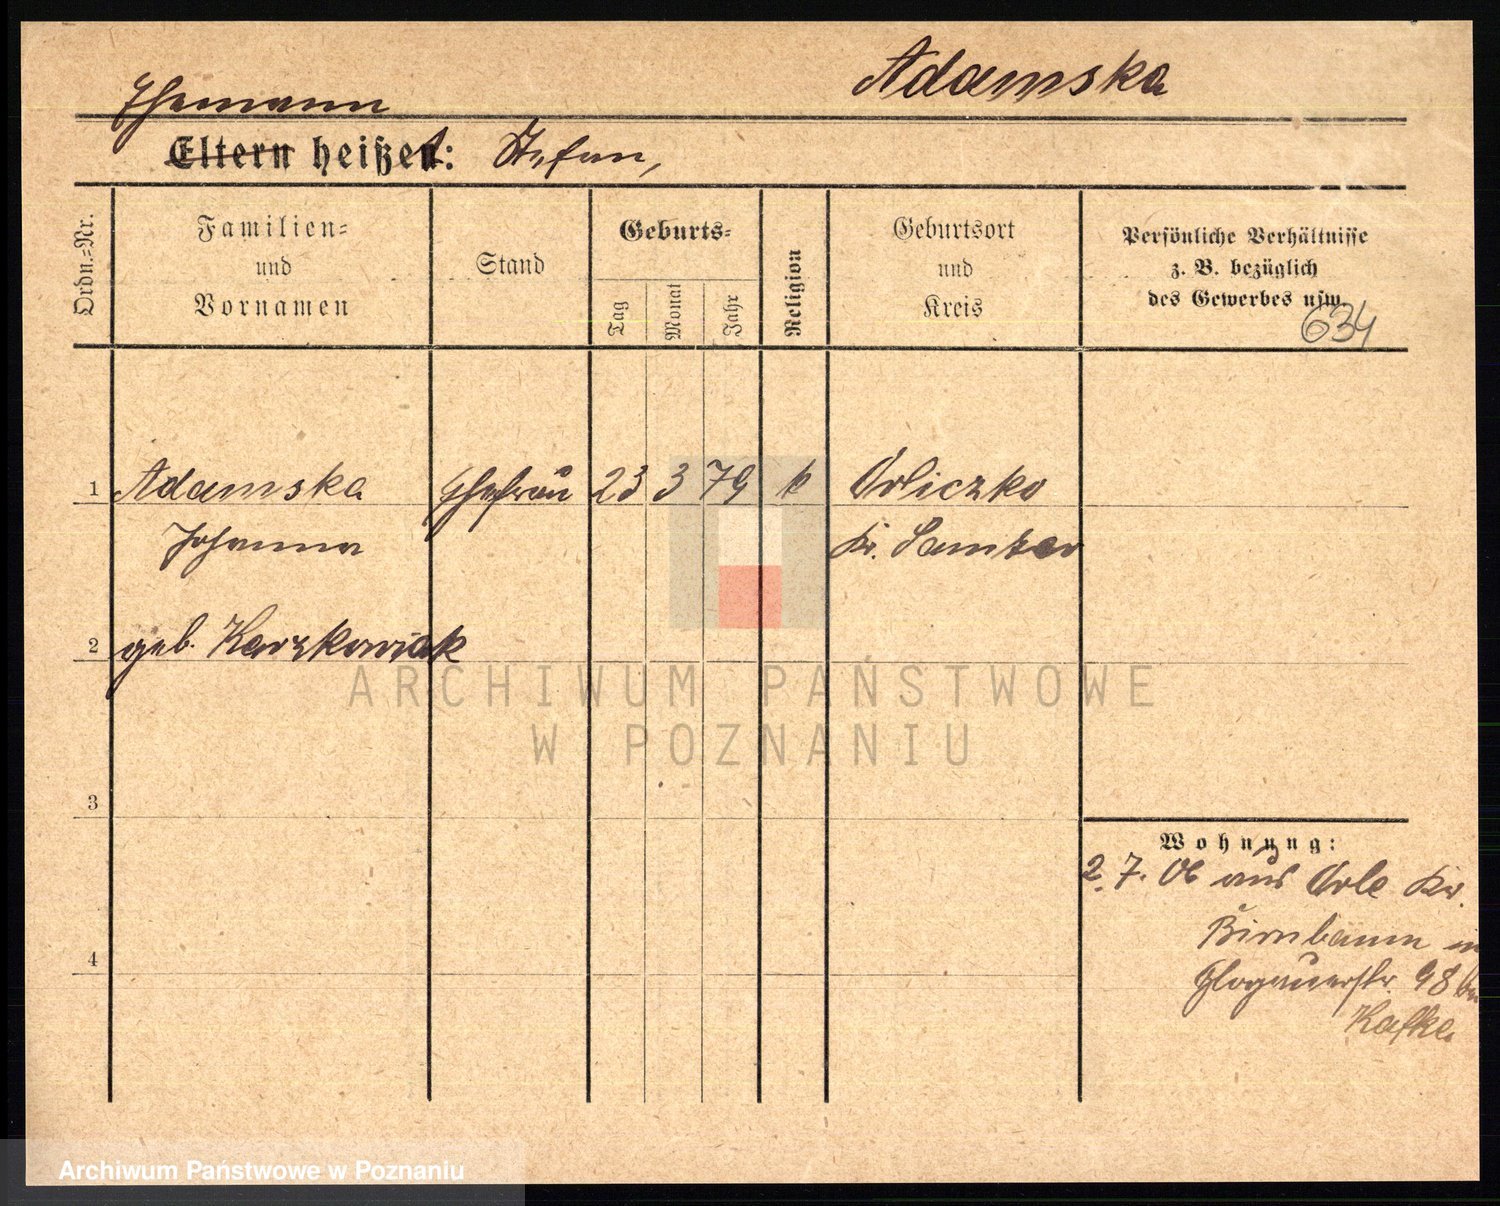 Adamska
Ehemann
Eltern heißen: Stefan,
Ordn.-Nr.
Familien-
und
Vornamen
Stand
Geburts-
Tag
Monat
Jahr
Religion
Geburtsort
und
Kreis
Persönliche Verhältnisse
z. B. bezüglich
des Gewerbes usw.
634
1 Adamska Ehefrau 23 3 79 k Orliczko
Johanna Kr. Samter
2 geb. Karzkowiak
ARCHIWUM PAŃSTWOWE
W POZNANIU
3
Wohnung:
2. 7. 06 aus Orle Kr.
Birnbaum in
4
Glogauerstr. 98 bei
Kafke.
Archiwum Państwowe w Poznaniu